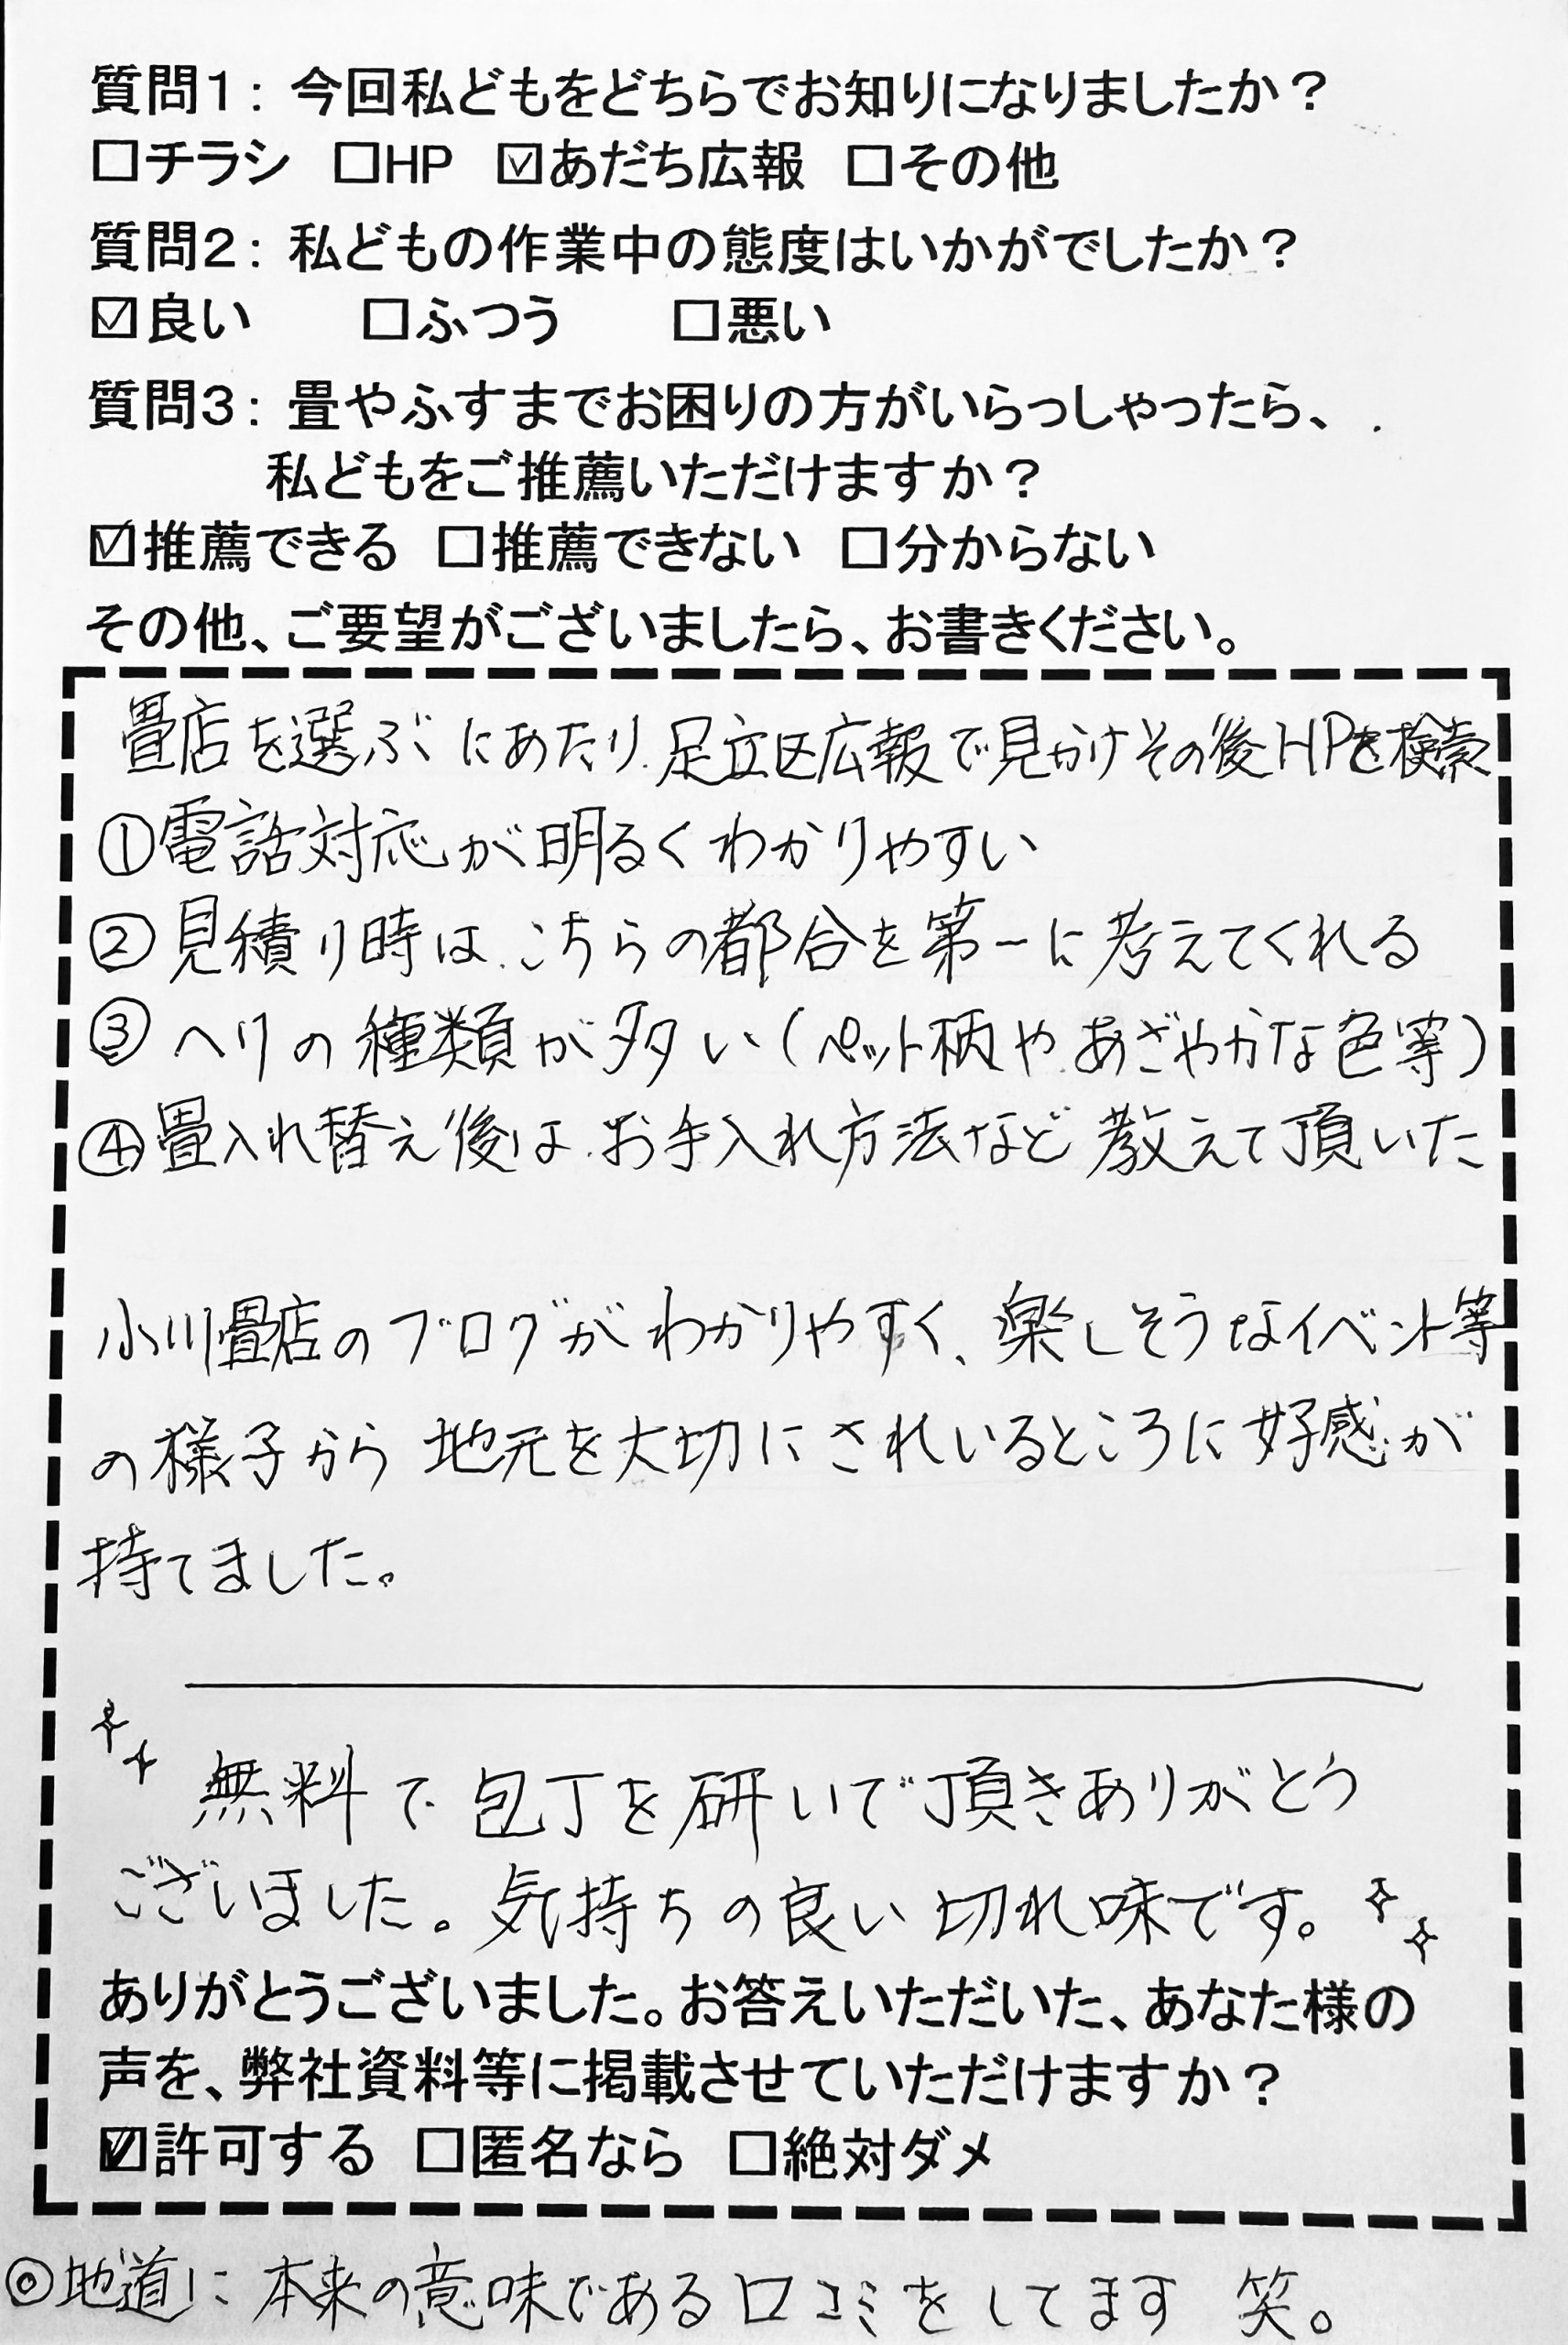 質問1：今回私どもをどちらでお知りになりましたか？
□チラシ □HP ☑あだち広報 □その他
質問2：私どもの作業中の態度はいかがでしたか？
☑良い □ふつう □悪い
質問3：畳やふすまでお困りの方がいらっしゃったら、
私どもをご推薦いただけますか？
☑推薦できる □推薦できない □分からない
その他、ご要望がございましたら、お書きください。
畳店を選ぶにあたり、足立区広報で見かけその後HPを検索
①電話対応が明るくわかりやすい
②見積り時は、こちらの都合を第一に考えてくれる
③ヘリの種類が多い（ペット柄や、あざやかな色等）
④畳入れ替え後は、お手入れ方法など教えて頂いた
小川畳店のブログがわかりやすく、楽しそうなイベント等
の様子から地元を大切にされいるところに好感が
持てました。
無料で包丁を研いで頂きありがとう
ございました。気持ちの良い切れ味です。
ありがとうございました。お答えいただいた、あなた様の
声を、弊社資料等に掲載させていただけますか？
☑許可する □匿名なら □絶対ダメ
◎地道に本来の意味である口コミをしてます 笑。